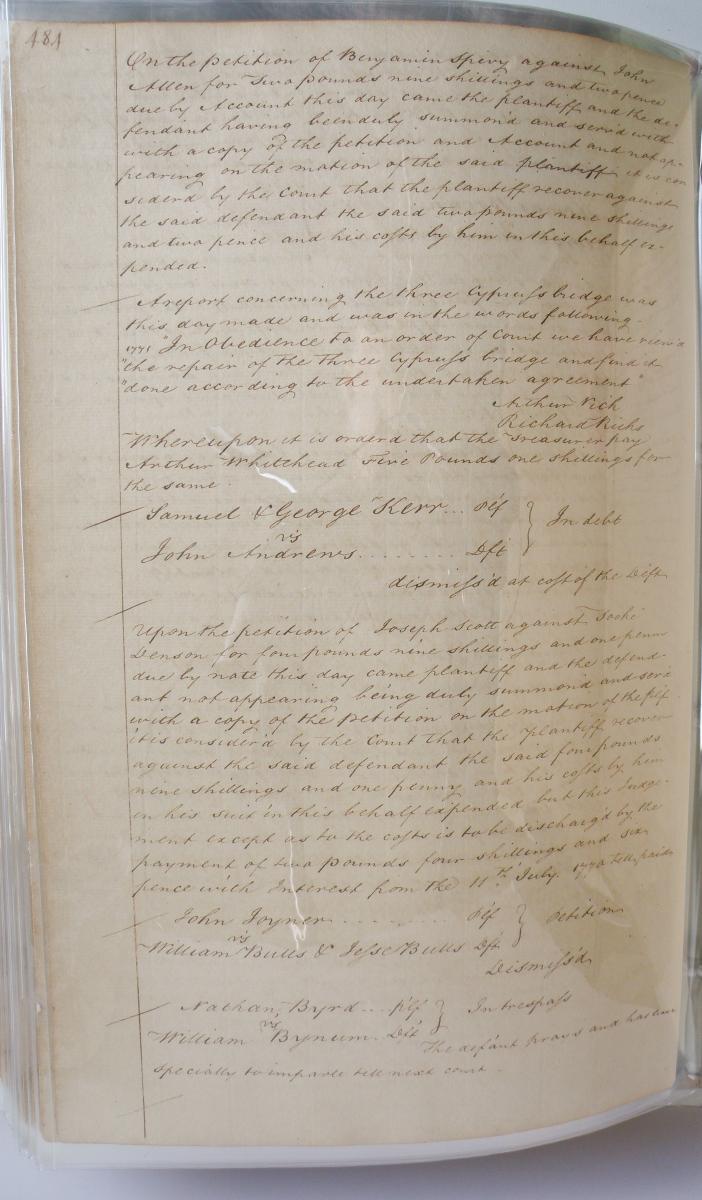 484
On the petition of Benjamin Spivy against John
Allen for Two pounds nine shillings and two pence
due by Account this day came the plantiff and the de-
fendant having been duly summon'd and serv'd with
with a copy of the petition and Account and not ap-
pearing on the motion of the said plantiff it is con
siderd by the Court that the plantiff recover against
the said defendant the said two pounds nine shillings
and two pence and his costs by him in this behalf ex-
pended.
A report concerning the three Cypruss bridge was
this day made and was in the words following.
1771 "In Obedience to an order of Court we have view'd
"the repair of the three Cypruss bridge and find it
"done according to the undertaken agreement"
Arthur Vick
Richard Ricks
Whereupon it is orderd that the Treasurer pay
Arthur Whitehead Five Pounds one shillings for
the same.
Samuel & George Kerr... Plf
vs } In debt
John Andrews......... Dft
dismiss'd at cost of the Dift
Upon the petition of Joseph Scott against
Denson for four pounds nine shillings and one penny
due by note this day came plantiff and the defend-
ant not appearing being duly summon'd and serv'd
with a copy of the petition on the motion of the plf
it is consider'd by the Court that the plantiff recover
against the said defendant the said four pounds
nine shillings and one penny and his costs by him
in his suit in this behalf expended but this Judge-
ment except as to the costs is to be discharg'd by the
payment of two pounds four shillings and six
pence with Interest from the 11th July. 1770 till paid
John Joyner.......... Plf
vs } Petition
William Bulls & Jesse Bulls Dft
Dismiss'd
Nathan Byrd... Plf
vs } In trespass
William Bynum.. Dft
The defant prays and has leave
specially to imparle till next court.